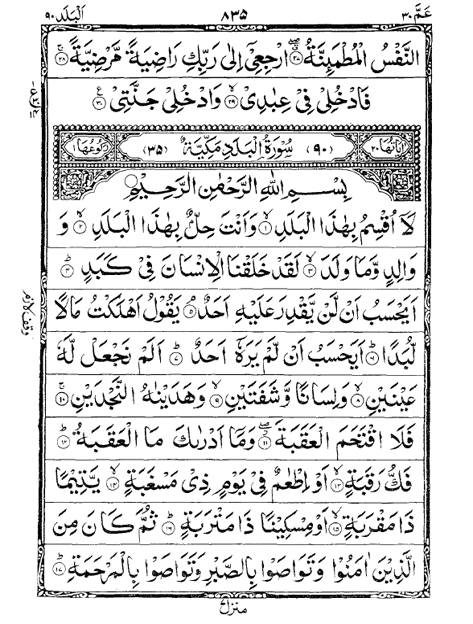 عَمَّ ٣٠ ٨٣٥ اَلْبَلَد ٩٠
النَّفْسُ الْمُطْمَىِٕنَّةُ ۝٢٧ ارْجِعِیْۤ اِلٰی رَبِّكِ رَاضِیَةً مَّرْضِیَّةً ۝٢٨
فَادْخُلِیْ فِیْ عِبٰدِیْ ۝٢٩ وَادْخُلِیْ جَنَّتِیْ ۝٣٠
اٰیَاتُهَا ٢٠ (٩٠) سُوْرَةُ الْبَلَدِ مَكِّیَّةٌ (٣٥) رُكُوْعُهَا ١
بِسْمِ اللّٰهِ الرَّحْمٰنِ الرَّحِیْمِ
لَاۤ اُقْسِمُ بِهٰذَا الْبَلَدِ ۝١ وَاَنْتَ حِلٌّۢ بِهٰذَا الْبَلَدِ ۝٢ وَ
وَالِدٍ وَّمَا وَلَدَ ۝٣ لَقَدْ خَلَقْنَا الْاِنْسَانَ فِیْ كَبَدٍ ۝٤
اَیَحْسَبُ اَنْ لَّنْ یَّقْدِرَ عَلَیْهِ اَحَدٌ ۝٥ یَقُوْلُ اَهْلَكْتُ مَالًا
لُّبَدًا ۝٦ اَیَحْسَبُ اَنْ لَّمْ یَرَهٗۤ اَحَدٌ ۝٧ اَلَمْ نَجْعَلْ لَّهٗ
عَیْنَیْنِ ۝٨ وَلِسَانًا وَّشَفَتَیْنِ ۝٩ وَهَدَیْنٰهُ النَّجْدَیْنِ ۝١٠
فَلَا اقْتَحَمَ الْعَقَبَةَ ۝١١ وَمَاۤ اَدْرٰىكَ مَا الْعَقَبَةُ ۝١٢
فَكُّ رَقَبَةٍ ۝١٣ اَوْ اِطْعٰمٌ فِیْ یَوْمٍ ذِیْ مَسْغَبَةٍ ۝١٤ یَّتِیْمًا
ذَا مَقْرَبَةٍ ۝١٥ اَوْ مِسْكِیْنًا ذَا مَتْرَبَةٍ ۝١٦ ثُمَّ كَانَ مِنَ
الَّذِیْنَ اٰمَنُوْا وَتَوَاصَوْا بِالصَّبْرِ وَتَوَاصَوْا بِالْمَرْحَمَةِ ۝١٧
منزل ٧